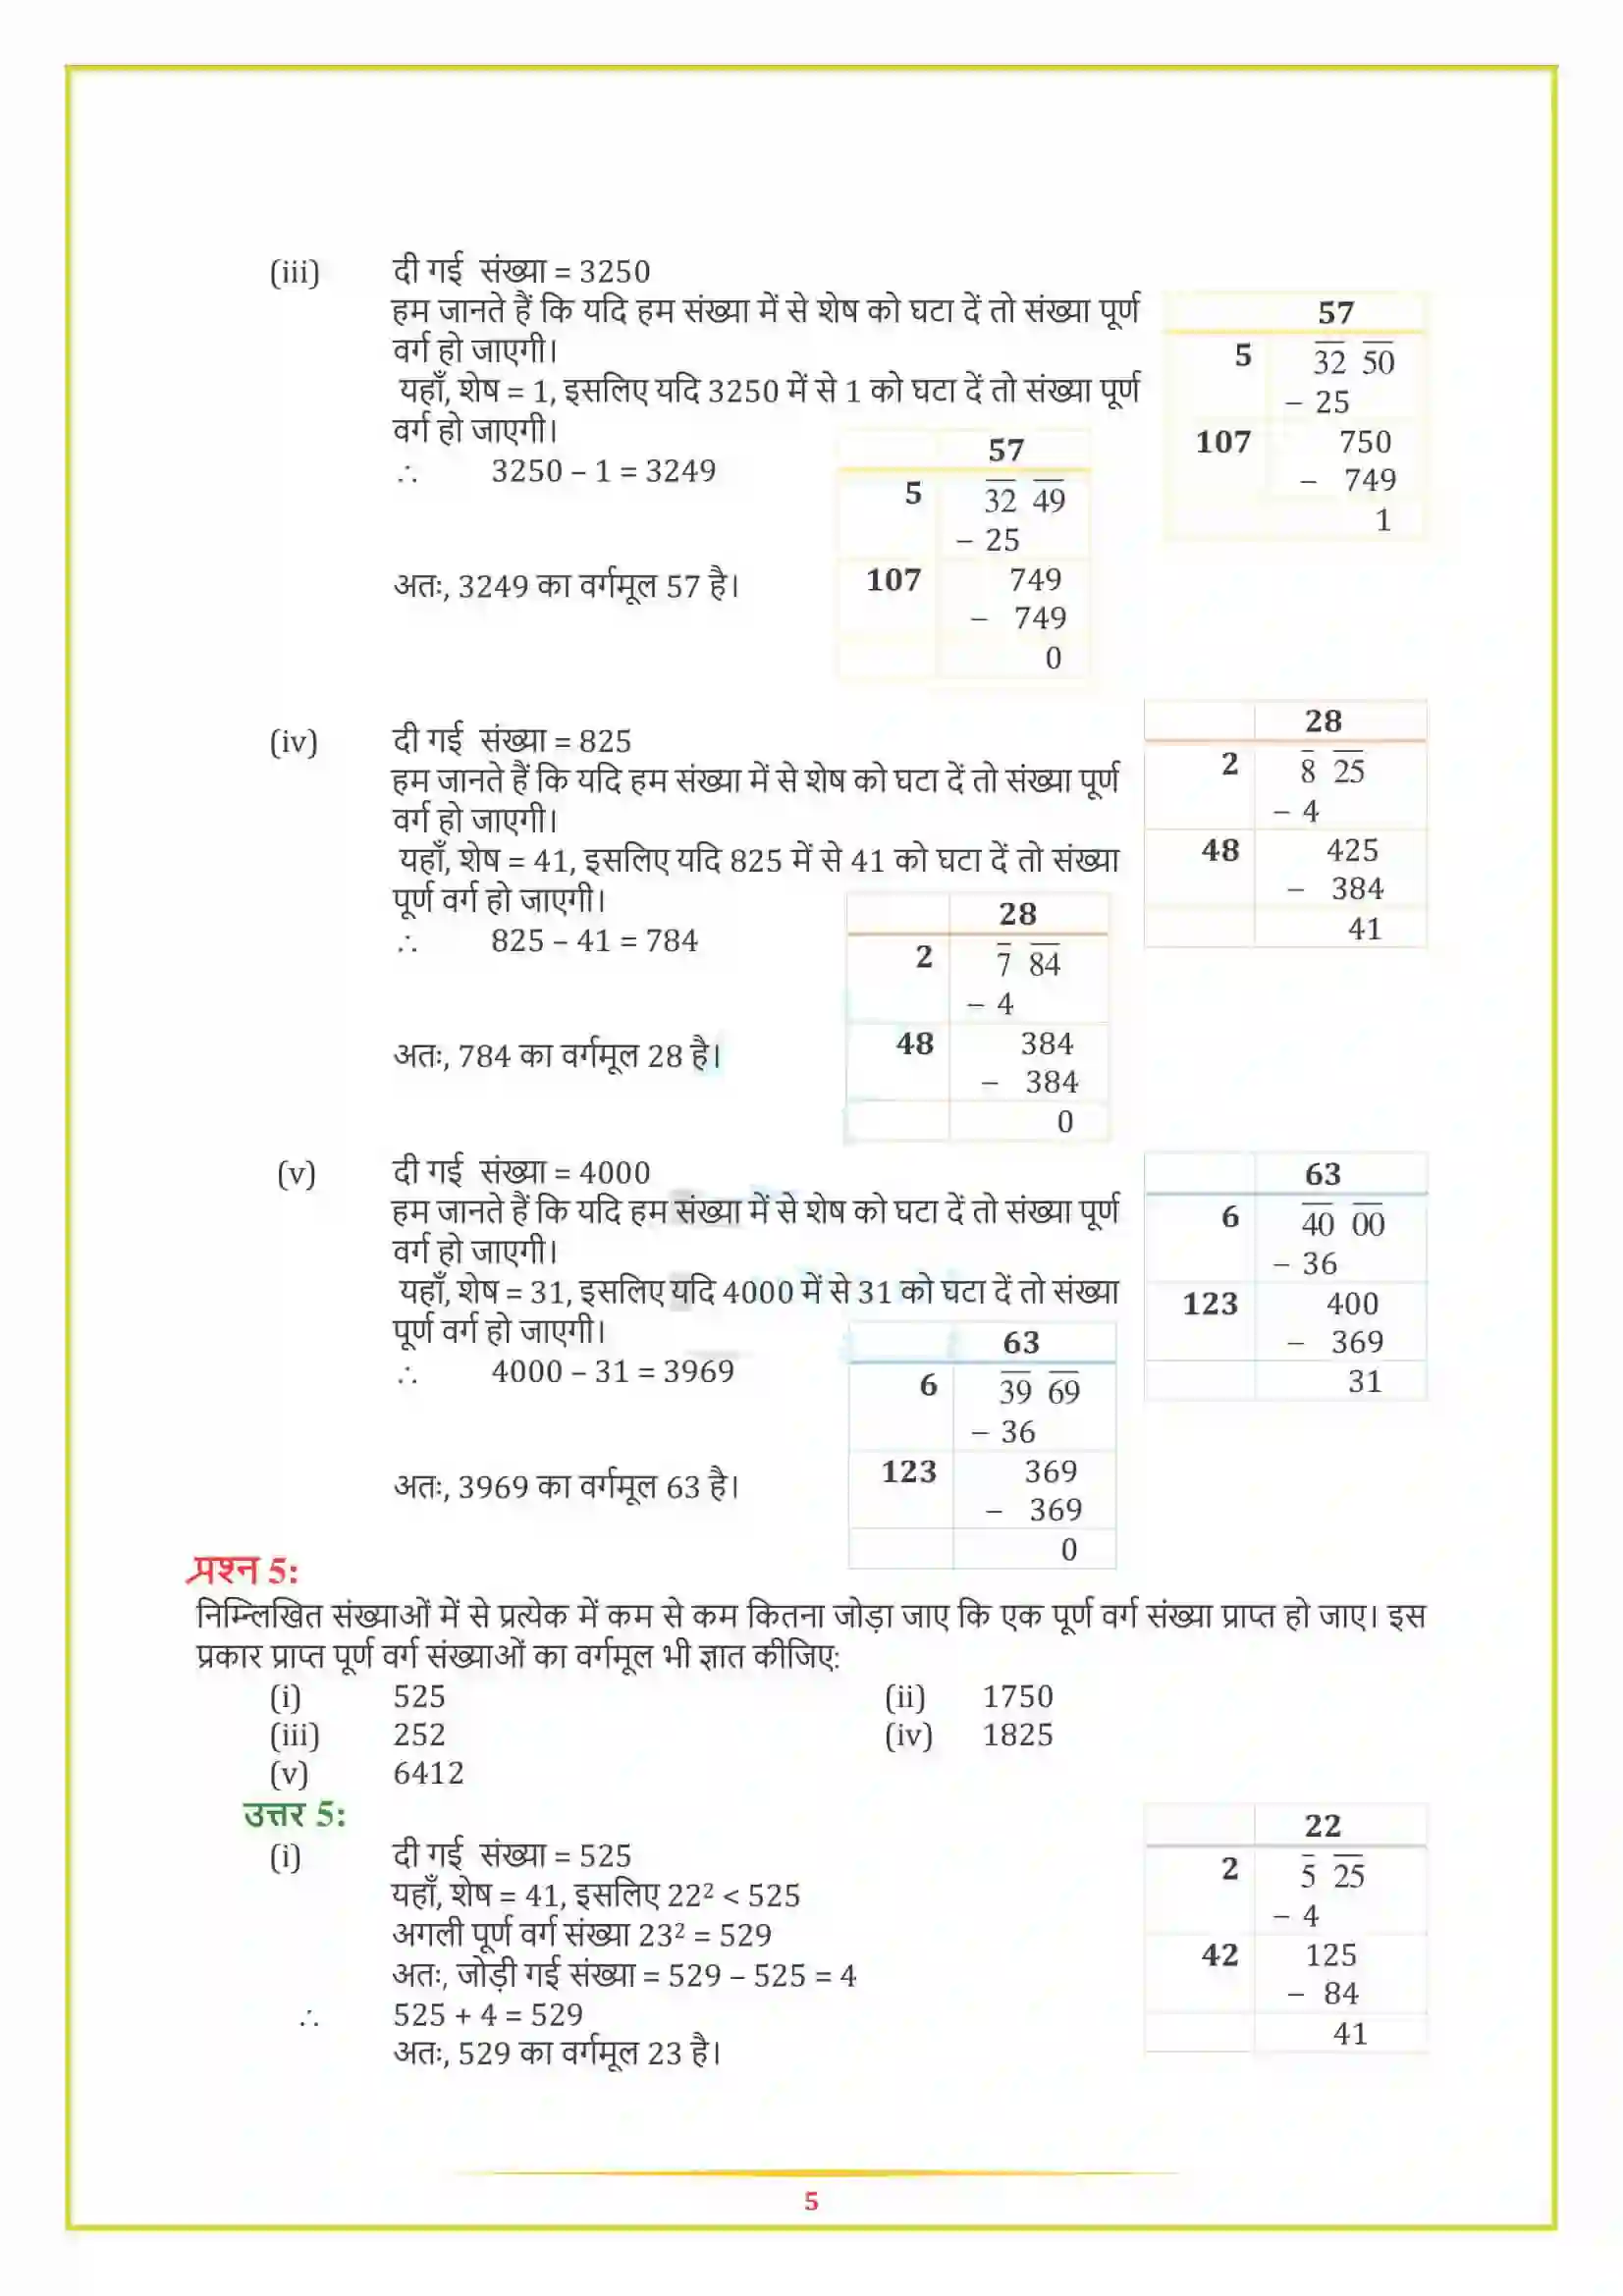 (iii) दी गई संख्या = 3250
हम जानते हैं कि यदि हम संख्या में से शेष को घटा दें तो संख्या पूर्ण
वर्ग हो जाएगी।
यहाँ, शेष = 1, इसलिए यदि 3250 में से 1 को घटा दें तो संख्या पूर्ण
वर्ग हो जाएगी।
∴ 3250 – 1 = 3249
अतः, 3249 का वर्गमूल 57 है।
57
5 32 49
– 25
107 749
– 749
0
57
5 32 50
– 25
107 750
– 749
1
(iv) दी गई संख्या = 825
हम जानते हैं कि यदि हम संख्या में से शेष को घटा दें तो संख्या पूर्ण
वर्ग हो जाएगी।
यहाँ, शेष = 41, इसलिए यदि 825 में से 41 को घटा दें तो संख्या
पूर्ण वर्ग हो जाएगी।
∴ 825 – 41 = 784
अतः, 784 का वर्गमूल 28 है।
28
2 7 84
– 4
48 384
– 384
0
28
2 8 25
– 4
48 425
– 384
41
(v) दी गई संख्या = 4000
हम जानते हैं कि यदि हम संख्या में से शेष को घटा दें तो संख्या पूर्ण
वर्ग हो जाएगी।
यहाँ, शेष = 31, इसलिए यदि 4000 में से 31 को घटा दें तो संख्या
पूर्ण वर्ग हो जाएगी।
∴ 4000 – 31 = 3969
अतः, 3969 का वर्गमूल 63 है।
63
6 39 69
– 36
123 369
– 369
0
63
6 40 00
– 36
123 400
– 369
31
प्रश्न 5:
निम्नलिखित संख्याओं में से प्रत्येक में कम से कम कितना जोड़ा जाए कि एक पूर्ण वर्ग संख्या प्राप्त हो जाए। इस
प्रकार प्राप्त पूर्ण वर्ग संख्याओं का वर्गमूल भी ज्ञात कीजिए:
(i) 525 (ii) 1750
(iii) 252 (iv) 1825
(v) 6412
उत्तर 5:
(i) दी गई संख्या = 525
यहाँ, शेष = 41, इसलिए 22² < 525
अगली पूर्ण वर्ग संख्या 23² = 529
अतः, जोड़ी गई संख्या = 529 – 525 = 4
∴ 525 + 4 = 529
अतः, 529 का वर्गमूल 23 है।
22
2 5 25
– 4
42 125
– 84
41
5